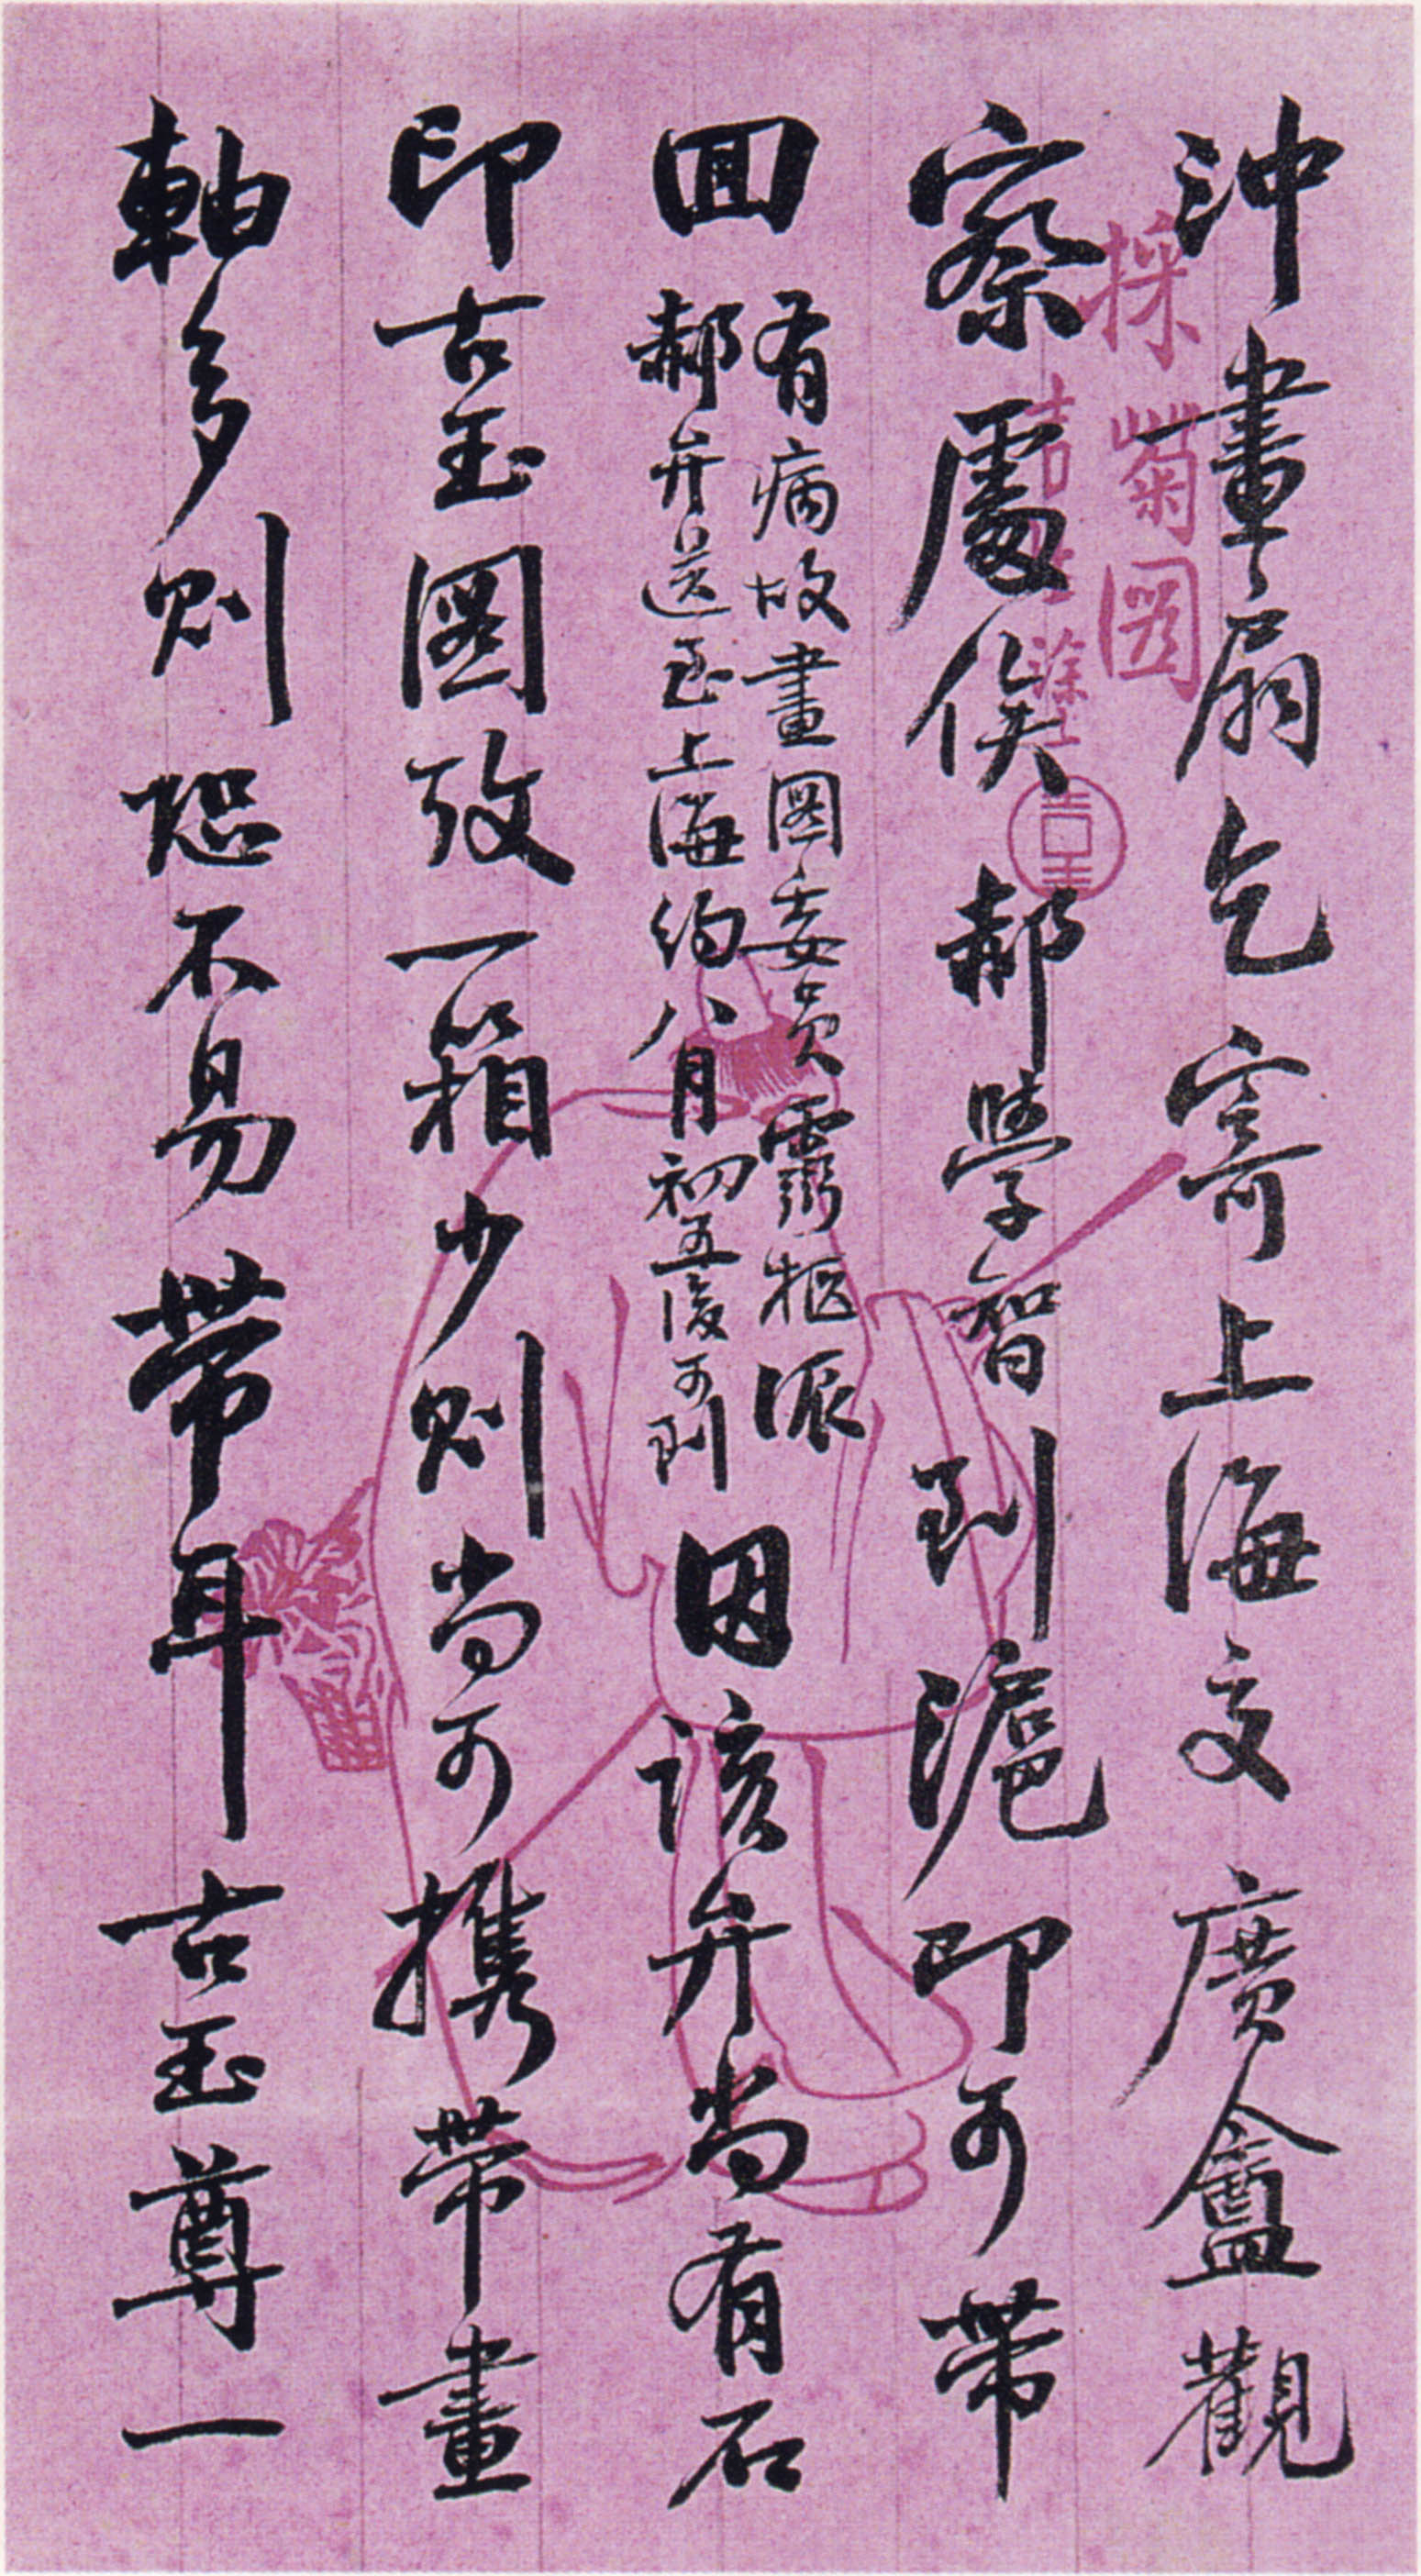 沖畫扇乞寄上海交廣盦觀
察處俟郝學智到滬即可帶
回
有病故畫圖委員靈柩派
郝弁送至上海約八月初五後可到
因該弁尚有石
印古玉圖攷一箱少則尚可攜帶畫
軸多則恐不易帶耳古玉尊一
採菊圖